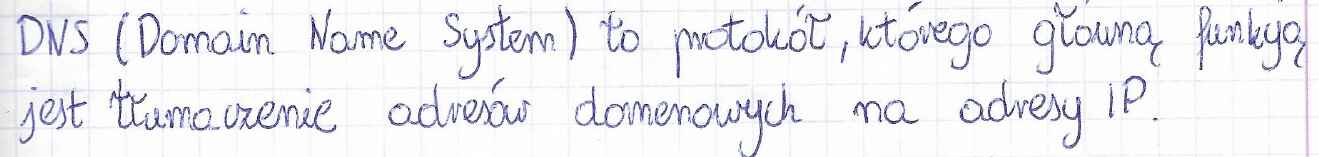 DNS (Domain Name System) to protokół, którego główną funkcją
jest tłumaczenie adresów domenowych na adresy IP.